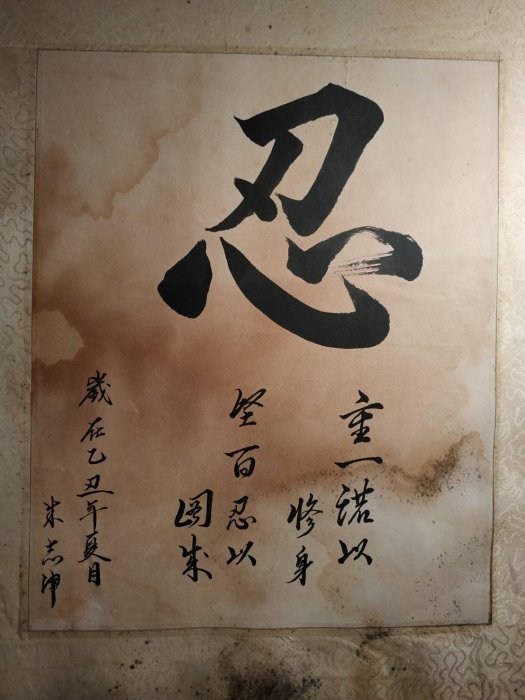 忍
重一诺以
修身
坚百忍以
图成
歲在乙丑年夏月
朱志坤